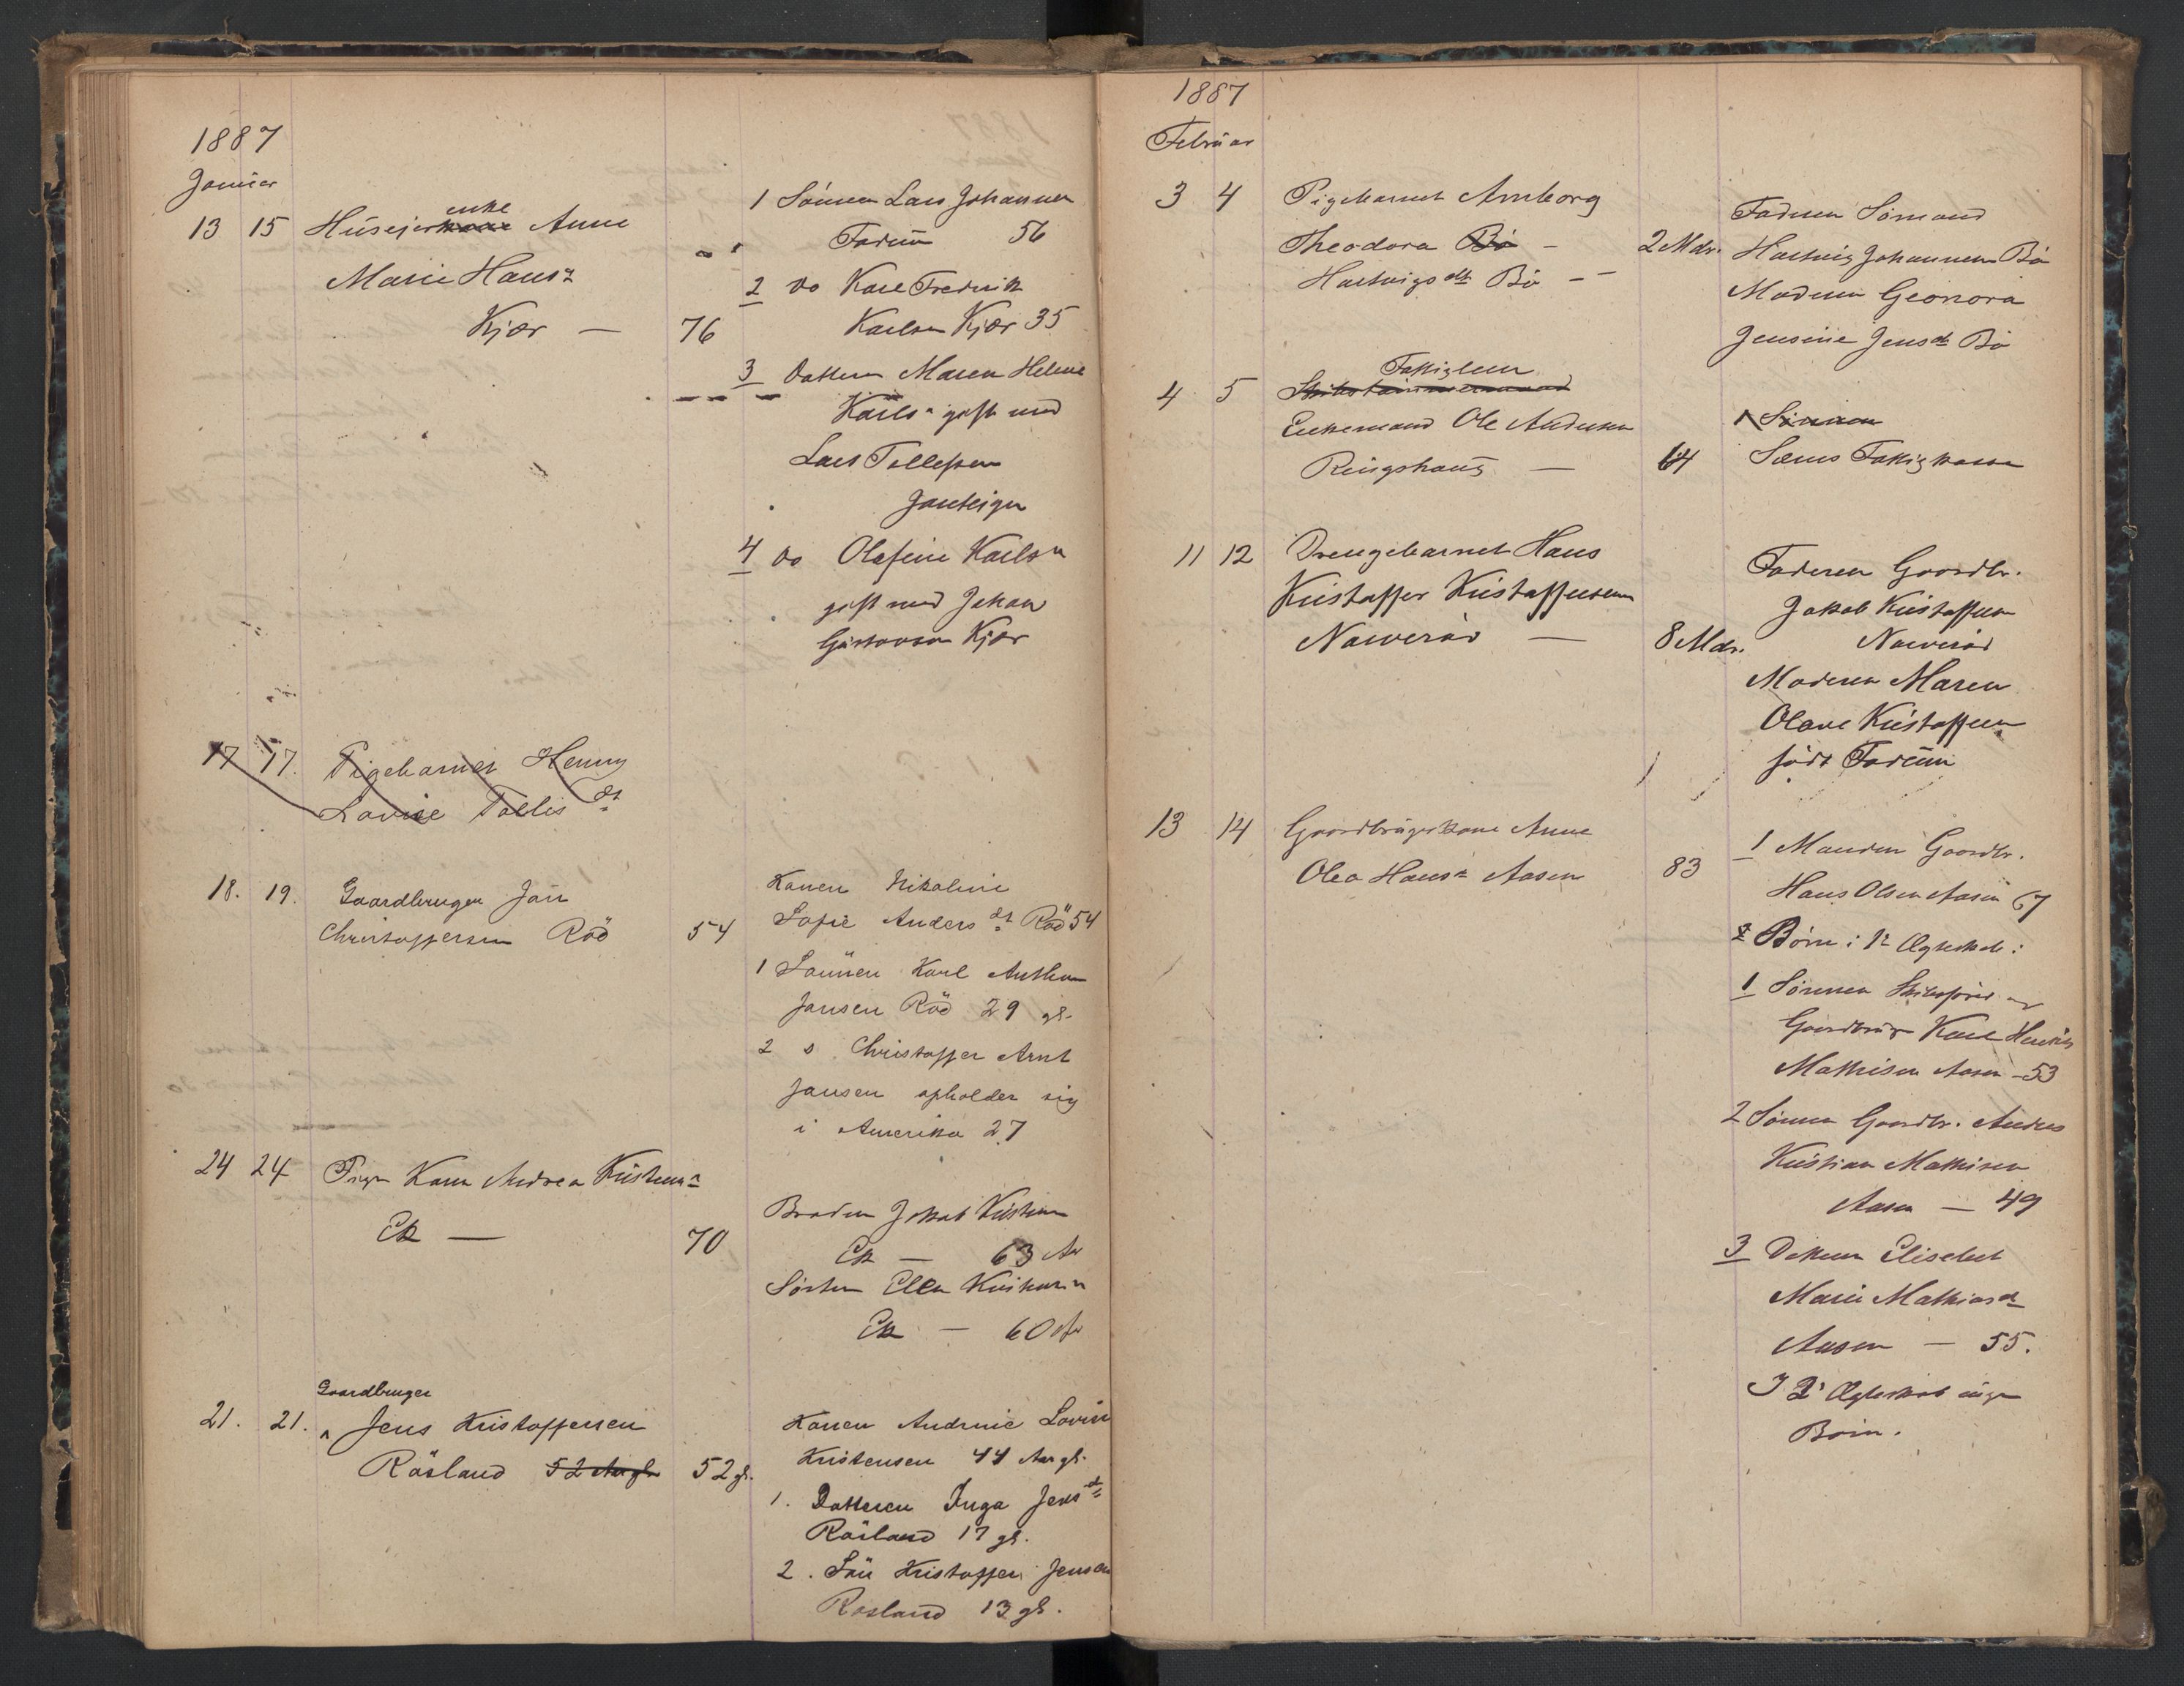 1887
Januar
13 15 Huusejer kone enke Anne
Marie Hans d
Kjær — 76
1 Sønnen Lars Johannes
Farum 56
2 do Karl Fredrik
Karlsen Kjær 35
3 Datteren Maren Helene
Karls d gift med
Lars Tollefsen
4 do Olafine Karls d
gift med Johan
Gustavsen Kjær
17 17. Pigebarnet Henny
Lovise Tollis dt
18. 19. Gaardbruger Jan
Christoffersen Röd 54
Konen Nikoline
Sofie Anders dt Röd 54
1 Sönnen Karl Anthon
Jansen Röd 29 gl.
2 s. Christoffer Arnt
Jansen opholder sig
i Amerika 27
24 24 Pige Karen Andrea Kristens d
Ek — 70
Broderen Jakob Kristensen
Ek — 63 Ar
Søsteren Ellen Kristens d
Ek — 60 Ar
21. 21. Gaardbruger
Jens Kristoffersen
Råsland 52 Aar gl 52 gl.
Konen Andrine Lovise
Kristensen 44 Aar gl.
1. Datteren Inga Jens dt
Råsland 17 gl.
2. Sön Kristoffer Jensen
Rosland 13 gl.
1887
Februar
3 4 Pigebarnet Arnborg
Theodora Bö —
Hartvigs dt Bö — 2 Mdr.
Faderen Sømand
Hartvig Johannesen Bö
Moderen Geonora
Jensine Jens dt Bö
4 5 Skibstømmermand Fattiglem
Enkemand Ole Andersen
Ringshaug — 64
1 Sønnen
Sems Fattigkasse
11 12 Drengebarnet Hans
Kristoffer Kristoffersen
Narverød — 8 Mdr.
Faderen Gaardbr.
Jakob Kristoffersen
Narverød
Moderen Maren
Olave Kristoffersen
født Farum
13 14 Gaardbrugerkone Anne
Olea Hans d Aasen 83
1 Manden Gaardbr.
Hans Olsen Aasen 67
2 Børn i 1 Ægteskab:
1 Sønnen Skibsfører og
Gaardbruger Karl Henrik
Mathisen Aasen — 53
2 Sønnen Gaardbr. Andreas
Kristian Mathisen
Aasen — 49
3 Datteren Elisebet
Marie Mathias d
Aasen — 55.
I 2 Ægteskab ingen
Børn.